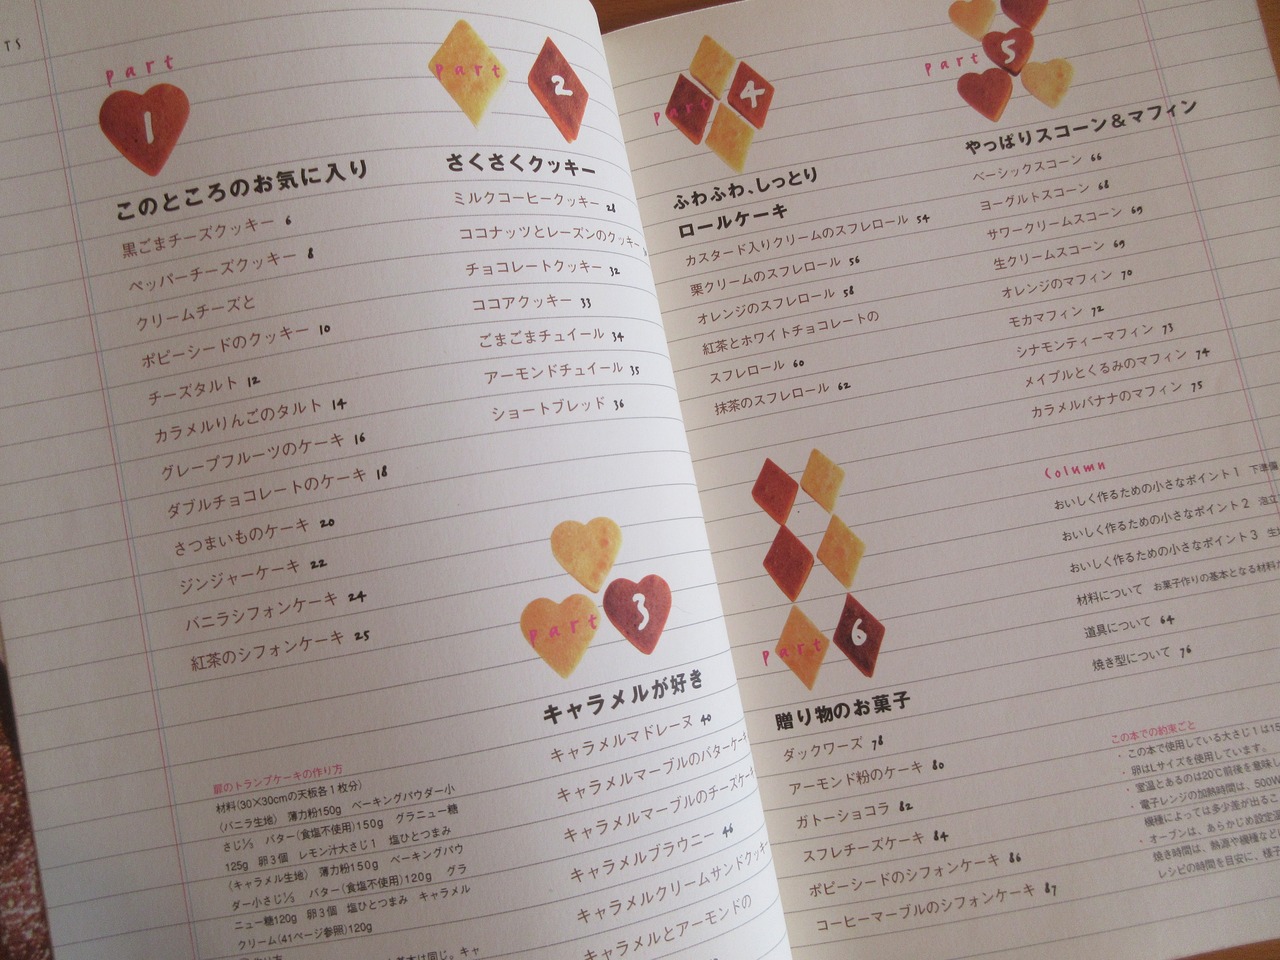 TS
part
1
このところのお気に入り
黒ごまチーズクッキー 6
ペッパーチーズクッキー 8
クリームチーズと
ポピーシードのクッキー 10
チーズタルト 12
カラメルりんごのタルト 14
グレープフルーツのケーキ 16
ダブルチョコレートのケーキ 18
さつまいものケーキ 20
ジンジャーケーキ 22
バニラシフォンケーキ 24
紅茶のシフォンケーキ 25
扉のトランプケーキの作り方
材料(30×30cmの天板各1枚分)
〈バニラ生地〉 薄力粉150g ベーキングパウダー小
さじ⅓ バター(食塩不使用)150g グラニュー糖
125g 卵3個 レモン汁大さじ1 塩ひとつまみ
〈キャラメル生地〉 薄力粉150g ベーキングパウ
ダー小さじ⅓ バター(食塩不使用)120g グラ
ニュー糖120g 卵3個 塩ひとつまみ キャラメル
クリーム(41ページ参照)120g
part
2
さくさくクッキー
ミルクコーヒークッキー 28
ココナッツとレーズンのクッキー
チョコレートクッキー 32
ココアクッキー 33
ごまごまチュイール 34
アーモンドチュイール 35
ショートブレッド 36
part
3
キャラメルが好き
キャラメルマドレーヌ 40
キャラメルマーブルのバターケーキ
キャラメルマーブルのチーズケーキ
キャラメルブラウニー 46
キャラメルクリームサンドクッキー
キャラメルとアーモンドの
part
4
ふわふわ、しっとり
ロールケーキ
カスタード入りクリームのスフレロール 54
栗クリームのスフレロール 56
オレンジのスフレロール 58
紅茶とホワイトチョコレートの
スフレロール 60
抹茶のスフレロール 62
part
5
やっぱりスコーン&マフィン
ベーシックスコーン 66
ヨーグルトスコーン 68
サワークリームスコーン 69
生クリームスコーン 69
オレンジのマフィン 70
モカマフィン 72
シナモンティーマフィン 73
メイプルとくるみのマフィン 74
カラメルバナナのマフィン 75
part
6
贈り物のお菓子
ダックワーズ 78
アーモンド粉のケーキ 80
ガトーショコラ 82
スフレチーズケーキ 84
ポピーシードのシフォンケーキ 86
コーヒーマーブルのシフォンケーキ 87
Column
おいしく作るための小さなポイント1 下準備
おいしく作るための小さなポイント2 泡立
おいしく作るための小さなポイント3 生
材料について お菓子作りの基本となる材料
道具について 64
焼き型について 76
この本での約束ごと
・この本で使用している大さじ1は15
・卵はLサイズを使用しています。
・室温とあるのは20℃前後を意味し
・電子レンジの加熱時間は、500W
機種によっては多少差が出るこ
・オーブンは、あらかじめ設定温
焼き時間は、熱源や機種など
レシピの時間を目安に、様子